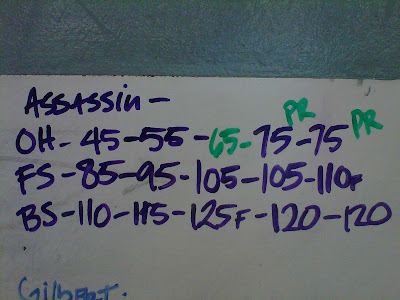 Assassin-
PR
OH-45-55-65-75-75 PR
FS-85-95-105-105-110F
BS-110-115-125F-120-120
Gilbert.